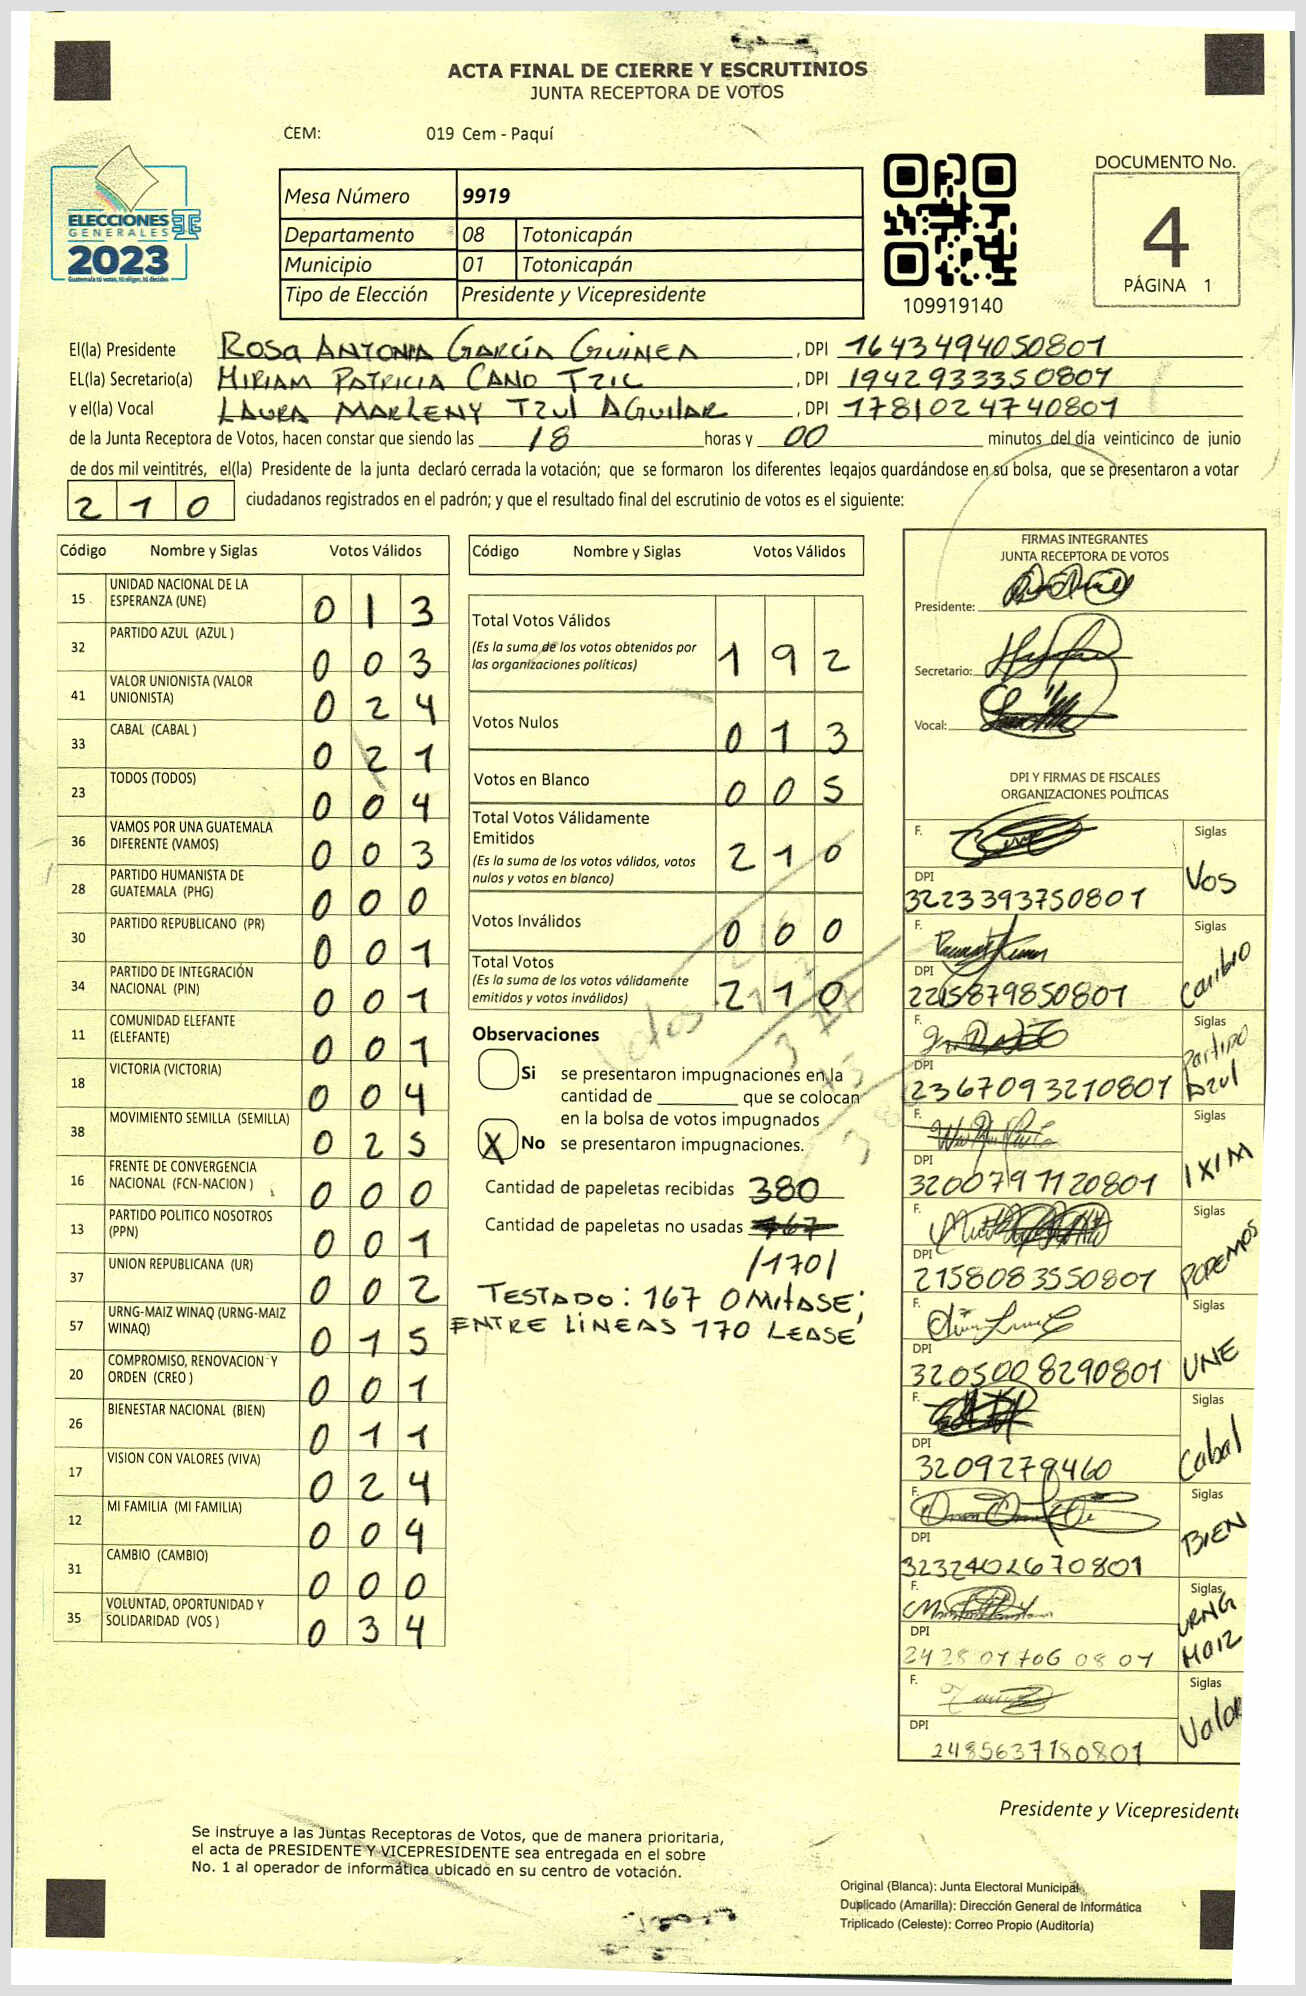 ACTA FINAL DE CIERRE Y ESCRUTINIOS
JUNTA RECEPTORA DE VOTOS
CEM: 019 Cem - Paquí
ELECCIONES
GENERALES
2023
Guatemala tú votas, tú eliges, tú decides
Mesa Número 9919
Departamento 08 Totonicapán
Municipio 01 Totonicapán
Tipo de Elección Presidente y Vicepresidente
109919140
DOCUMENTO No.
4
PÁGINA 1
El(la) Presidente ROSA ANTONIA GARCÍA GUINEA, DPI 1643494050801
EL(la) Secretario(a) MIRIAM PATRICIA CANO TZIC, DPI 1942933350801
y el(la) Vocal LAURA MARLENY TZUL AGUILAR, DPI 1781024740801
de la Junta Receptora de Votos, hacen constar que siendo las 18 horas y 00 minutos del día veinticinco de junio
de dos mil veintitrés, el(la) Presidente de la junta declaró cerrada la votación; que se formaron los diferentes legajos guardándose en su bolsa, que se presentaron a votar
210 ciudadanos registrados en el padrón; y que el resultado final del escrutinio de votos es el siguiente:
Código Nombre y Siglas Votos Válidos
15 UNIDAD NACIONAL DE LA ESPERANZA (UNE) 013
32 PARTIDO AZUL (AZUL ) 003
41 VALOR UNIONISTA (VALOR UNIONISTA) 024
33 CABAL (CABAL ) 021
23 TODOS (TODOS) 004
36 VAMOS POR UNA GUATEMALA DIFERENTE (VAMOS) 003
28 PARTIDO HUMANISTA DE GUATEMALA (PHG) 000
30 PARTIDO REPUBLICANO (PR) 001
34 PARTIDO DE INTEGRACIÓN NACIONAL (PIN) 001
11 COMUNIDAD ELEFANTE (ELEFANTE) 001
18 VICTORIA (VICTORIA) 004
38 MOVIMIENTO SEMILLA (SEMILLA) 025
16 FRENTE DE CONVERGENCIA NACIONAL (FCN-NACION ) 000
13 PARTIDO POLITICO NOSOTROS (PPN) 001
37 UNION REPUBLICANA (UR) 002
57 URNG-MAIZ WINAQ (URNG-MAIZ WINAQ) 015
20 COMPROMISO, RENOVACION Y ORDEN (CREO ) 001
26 BIENESTAR NACIONAL (BIEN) 011
17 VISION CON VALORES (VIVA) 024
12 MI FAMILIA (MI FAMILIA) 004
31 CAMBIO (CAMBIO) 000
35 VOLUNTAD, OPORTUNIDAD Y SOLIDARIDAD (VOS ) 034
Código Nombre y Siglas Votos Válidos
Total Votos Válidos 192
(Es la suma de los votos obtenidos por
las organizaciones políticas)
Votos Nulos 013
Votos en Blanco 005
Total Votos Válidamente
Emitidos 210
(Es la suma de los votos válidos, votos
nulos y votos en blanco)
Votos Inválidos 000
Total Votos 210
(Es la suma de los votos válidamente
emitidos y votos inválidos)
Votos
Observaciones
Si se presentaron impugnaciones en la
cantidad de ________ que se colocan
en la bolsa de votos impugnados
X No se presentaron impugnaciones.
Cantidad de papeletas recibidas 380
Cantidad de papeletas no usadas 167
/170/
TESTADO: 167 OMITASE;
ENTRE LINEAS 170 LEASE
FIRMAS INTEGRANTES
JUNTA RECEPTORA DE VOTOS
Presidente:
Secretario:
Vocal:
DPI Y FIRMAS DE FISCALES
ORGANIZACIONES POLÍTICAS
F. Siglas VOS
DPI 3223393750801
F. Siglas Cambio
DPI 2215879850801
F. Siglas Partido Azul
DPI 2367093210801
F. Siglas IXIM
DPI 3200791120801
F. Siglas PODEMOS
DPI 2158083550801
F. Siglas UNE
DPI 3205008290801
F. Siglas Cabal
DPI 3209279460
F. Siglas BIEN
DPI 3232402670801
F. Siglas URNG MAIZ
DPI 2428017060801
F. Siglas Valor
DPI 2485637180801
Presidente y Vicepresidente
Se instruye a las Juntas Receptoras de Votos, que de manera prioritaria,
el acta de PRESIDENTE Y VICEPRESIDENTE sea entregada en el sobre
No. 1 al operador de informática ubicado en su centro de votación.
Original (Blanca): Junta Electoral Municipal
Duplicado (Amarilla): Dirección General de Informática
Triplicado (Celeste): Correo Propio (Auditoría)